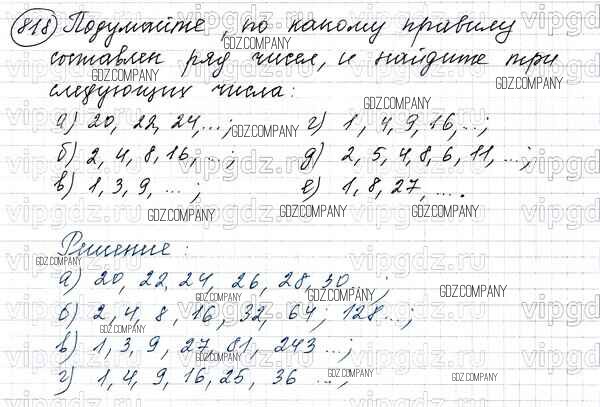 818 Подумайте, по какому правилу
составлен ряд чисел, и найдите три
следующих числа:
а) 20, 22, 24,...; г) 1, 4, 9, 16,...;
б) 2, 4, 8, 16, ...; д) 2, 5, 4, 8, 6, 11, ...;
в) 1, 3, 9, ...; е) 1, 8, 27, ....
Решение:
а) 20, 22, 24, 26, 28, 30 ...;
б) 2, 4, 8, 16, 32, 64, 128...;
в) 1, 3, 9, 27, 81, 243 ...;
г) 1, 4, 9, 16, 25, 36 ...,
GDZ.COMPANY
vipgdz.ru